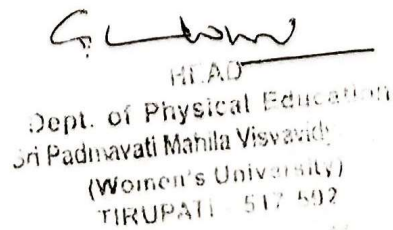 HEAD
Dept. of Physical Education
Sri Padmavati Mahila
(Women's University)
TIRUPATI - 517 502